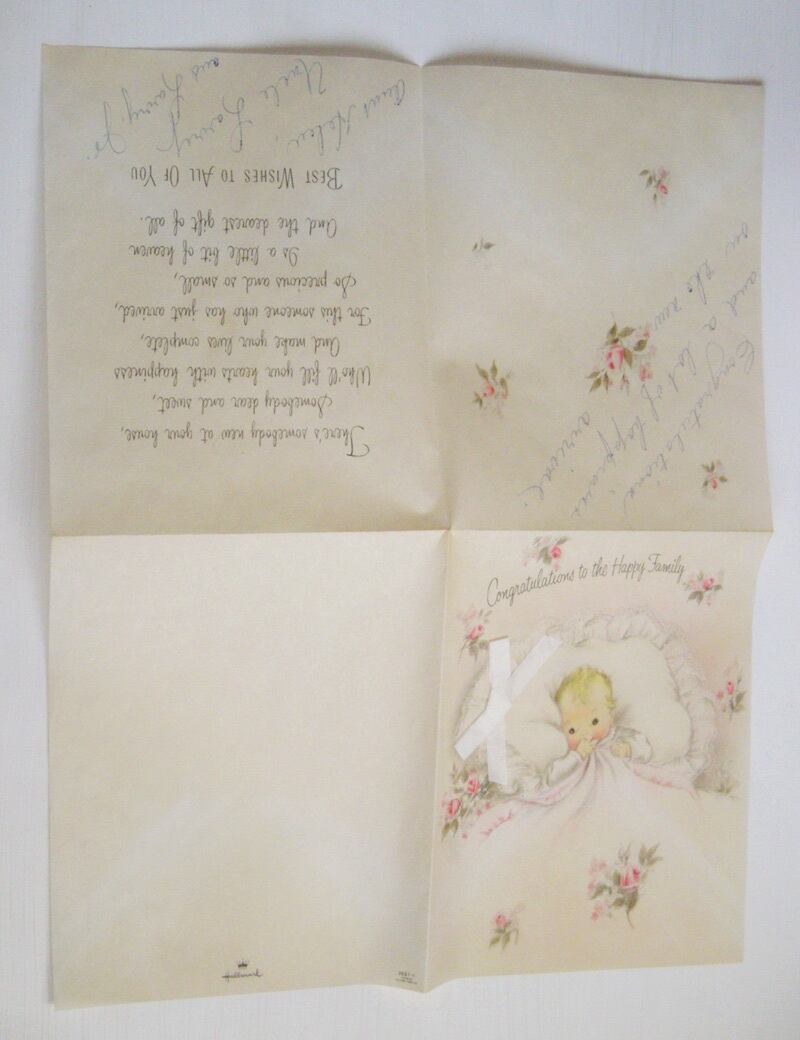 Congratulations to the Happy Family
Hallmark
Congratulations
and a lot of happiness
on the new arrival.
There's somebody new at your house,
Somebody dear and sweet,
Who'll fill your hearts with happiness
And make your lives complete,
For this someone who has just arrived,
So precious and so small,
Is a little bit of heaven
And the dearest gift of all.
BEST WISHES TO ALL OF YOU
Aunt Helen,
Uncle Larry
and Larry, Jr.